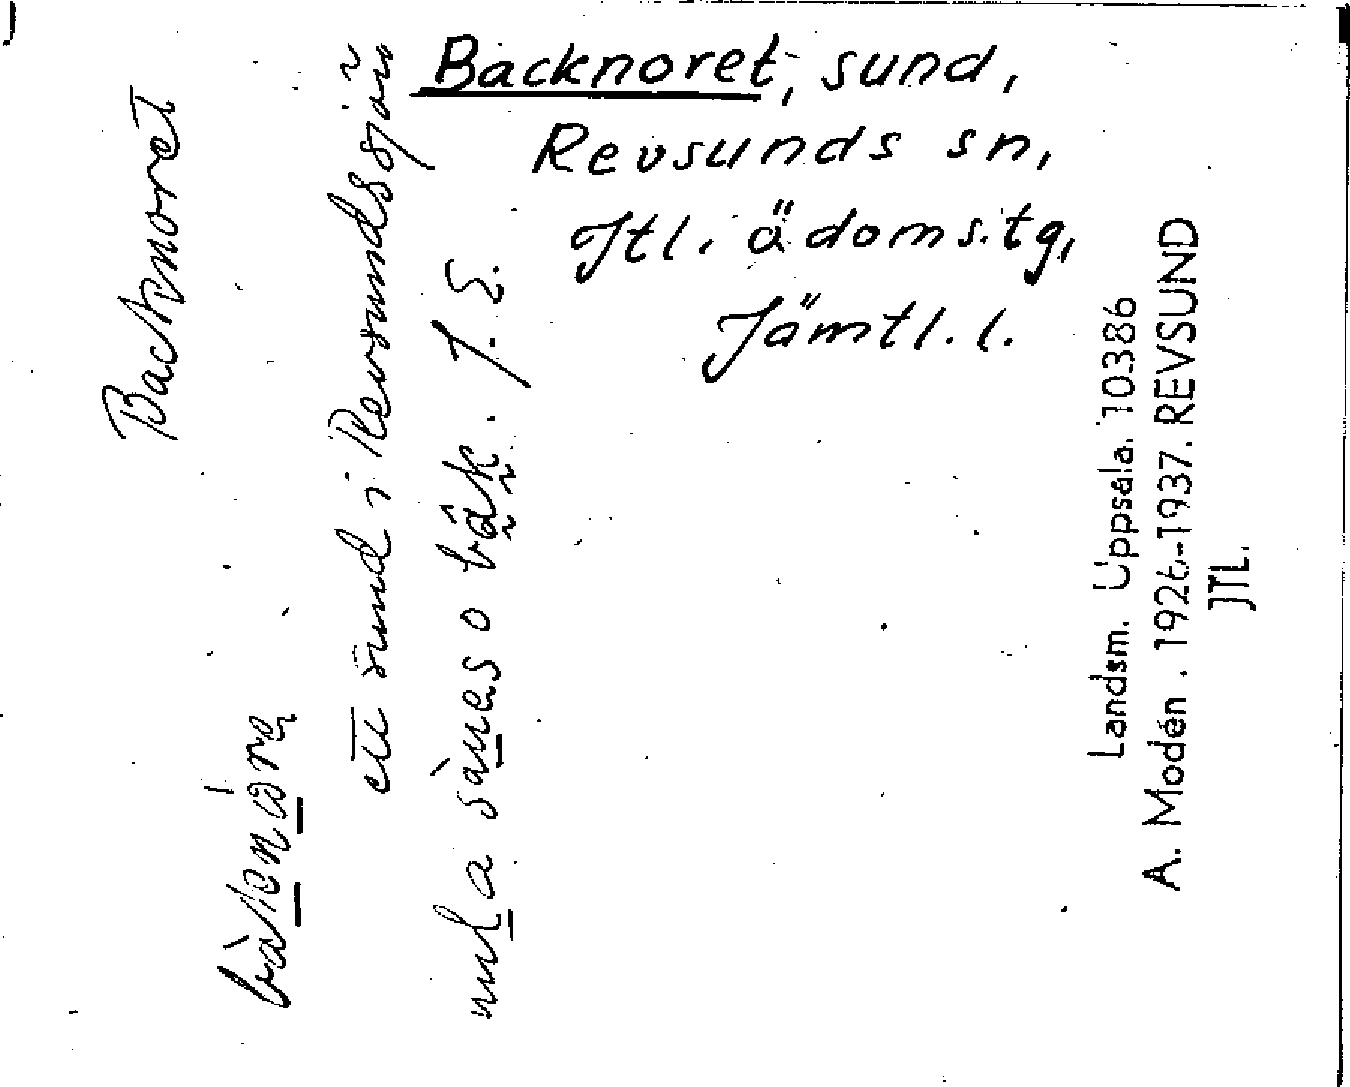 Backnoret, sund,
Revsunds sn,
Jtl. ä. doms.tg,
Jämtl. l.
Backnoret
ett sund i Revsundssjön
o J. E.
Landsm. Uppsala. 10386
A. Modén. 1926-1937. REVSUND
JTL.